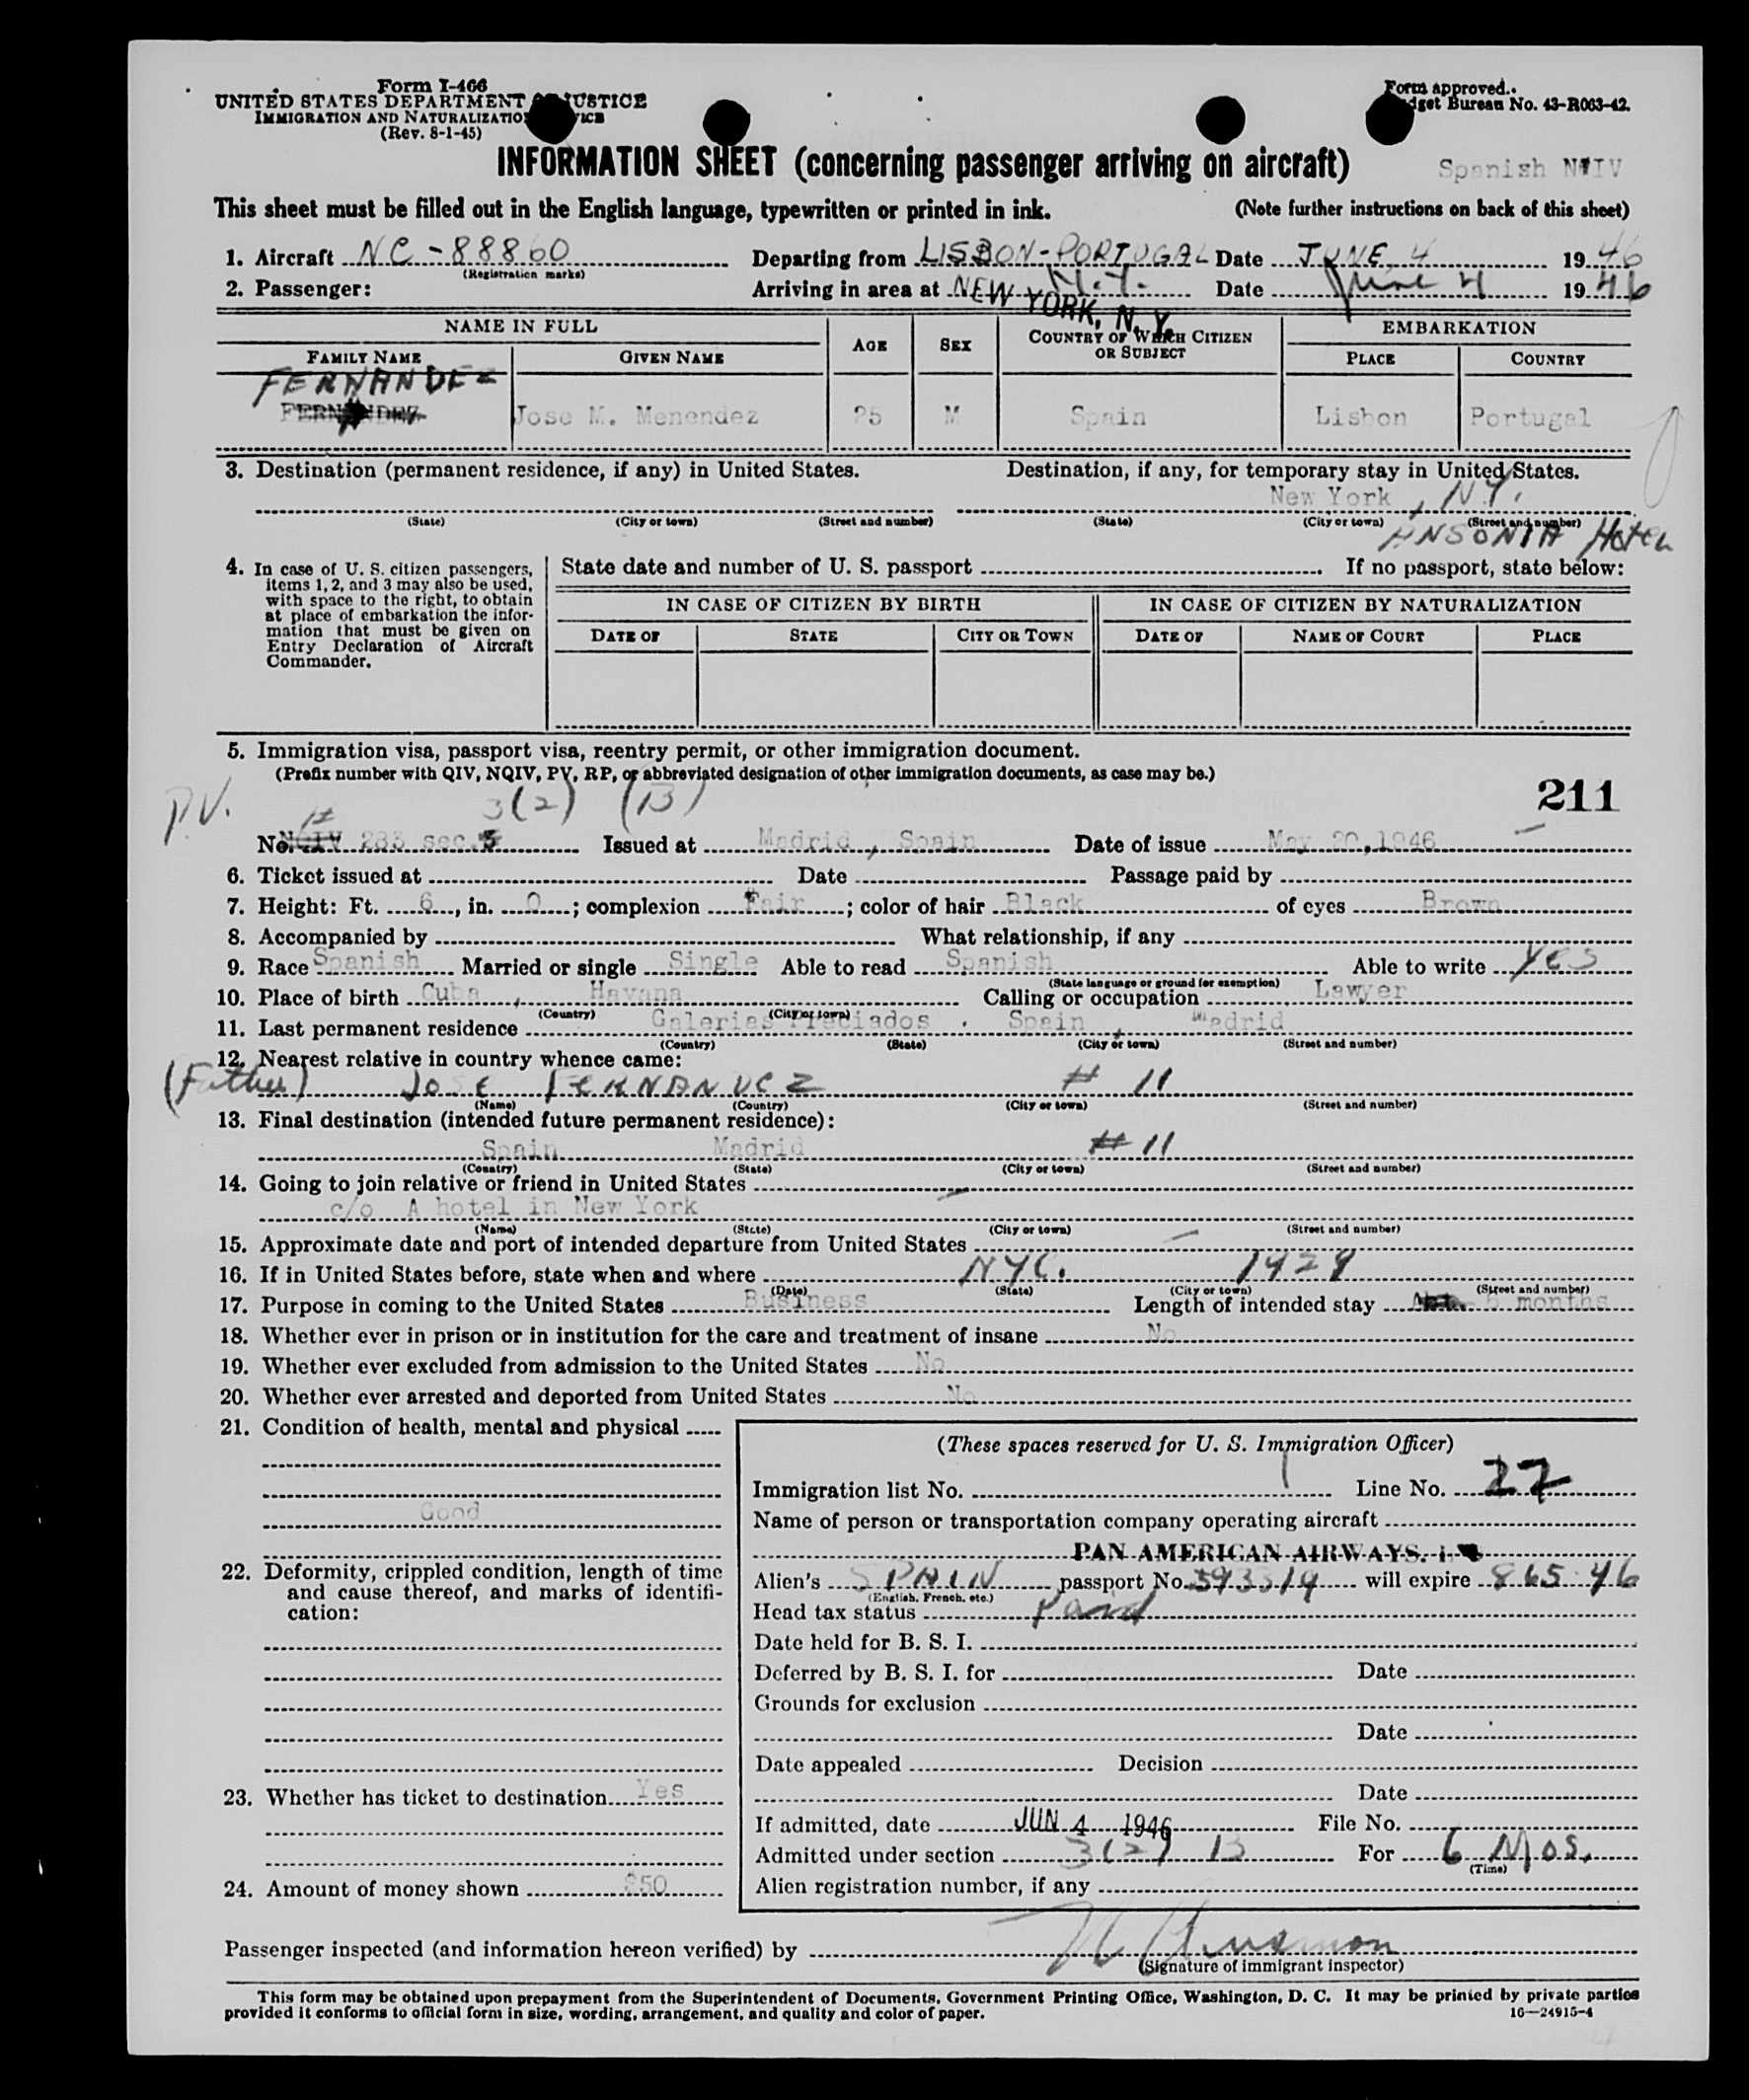 Form I-466
UNITED STATES DEPARTMENT OF JUSTICE
IMMIGRATION AND NATURALIZATION SERVICE
(Rev. 8-1-45)
Form approved.
Budget Bureau No. 43-R063-42.
INFORMATION SHEET (concerning passenger arriving on aircraft)
Spanish NQIV
This sheet must be filled out in the English language, typewritten or printed in ink. (Note further instructions on back of this sheet)
1. Aircraft NC-88860 Departing from LISBON-PORTUGAL Date JUNE 4 1946
(Registration marks)
2. Passenger: Arriving in area at NEW YORK, N.Y. N.Y. Date June 4 1946
NAME IN FULL AGE SEX COUNTRY OF WHICH CITIZEN OR SUBJECT EMBARKATION
FAMILY NAME GIVEN NAME PLACE COUNTRY
FERNANDEZ
FERNANDEZ Jose M. Menendez 25 M Spain Lisbon Portugal
3. Destination (permanent residence, if any) in United States. Destination, if any, for temporary stay in United States.
New York, N.Y.
(State) (City or town) (Street and number) (State) (City or town) (Street and number)
ANSONIA Hotel
4. In case of U. S. citizen passengers, items 1, 2, and 3 may also be used, with space to the right, to obtain at place of embarkation the information that must be given on Entry Declaration of Aircraft Commander.
State date and number of U. S. passport If no passport, state below:
IN CASE OF CITIZEN BY BIRTH IN CASE OF CITIZEN BY NATURALIZATION
DATE OF STATE CITY OR TOWN DATE OF NAME OF COURT PLACE
5. Immigration visa, passport visa, reentry permit, or other immigration document.
(Prefix number with QIV, NQIV, PV, RP, or abbreviated designation of other immigration documents, as case may be.)
211
P.V. 3(2) (B)
No. NQIV 283 sec. 3 Issued at Madrid, Spain Date of issue May 20, 1946
6. Ticket issued at Date Passage paid by
7. Height: Ft. 6, in. 0; complexion Fair; color of hair Black of eyes Brown
8. Accompanied by What relationship, if any
9. Race Spanish Married or single Single Able to read Spanish Able to write YES
(State language or ground for exemption)
10. Place of birth Cuba, Havana Calling or occupation Lawyer
(Country) (City or town)
11. Last permanent residence Galerias Preciados. Spain, Madrid
(Country) (State) (City or town) (Street and number)
12. Nearest relative in country whence came:
(Father) JOSE FERNANDEZ # 11
(Name) (Country) (City or town) (Street and number)
13. Final destination (intended future permanent residence):
Spain Madrid # 11
(Country) (State) (City or town) (Street and number)
14. Going to join relative or friend in United States
c/o A hotel in New York
(Name) (State) (City or town) (Street and number)
15. Approximate date and port of intended departure from United States
16. If in United States before, state when and where NYC. 1929
(Date) (State) (City or town) (Street and number)
17. Purpose in coming to the United States Business Length of intended stay 5 months
18. Whether ever in prison or in institution for the care and treatment of insane No
19. Whether ever excluded from admission to the United States No
20. Whether ever arrested and deported from United States No
21. Condition of health, mental and physical
Good
22. Deformity, crippled condition, length of time and cause thereof, and marks of identification:
23. Whether has ticket to destination Yes
24. Amount of money shown $50
(These spaces reserved for U. S. Immigration Officer)
Immigration list No. 1 Line No. 27
Name of person or transportation company operating aircraft
PAN AMERICAN AIRWAYS, I
Alien's SPAIN passport No. 393319 will expire
(English, French, etc.)
Head tax status Paid
Date held for B. S. I.
Deferred by B. S. I. for Date
Grounds for exclusion
Date
Date appealed Decision
Date
If admitted, date JUN 4 1946 File No.
Admitted under section 3(2) B For 6 Mos.
(Time)
Alien registration number, if any
Passenger inspected (and information hereon verified) by
(Signature of immigrant inspector)
This form may be obtained upon prepayment from the Superintendent of Documents, Government Printing Office, Washington, D. C. It may be printed by private parties
provided it conforms to official form in size, wording, arrangement, and quality and color of paper. 16—24915-4